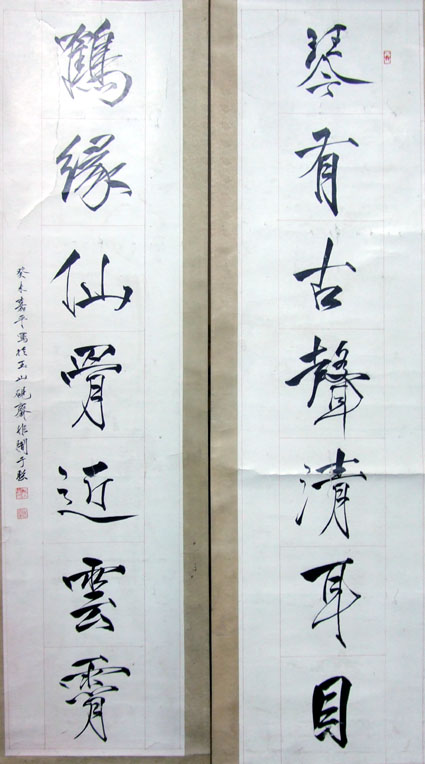 琴有古聲清耳目
鶴緣仙骨近雲霄
癸未嘉平寫於玉山硯齋